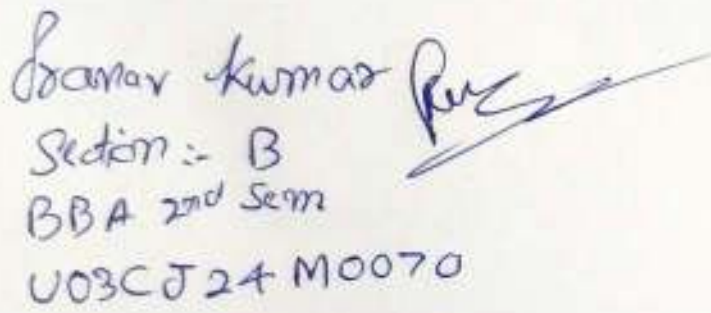 Pranav Kumar
Section :- B
BBA 2nd Sem
U03CJ24M0070